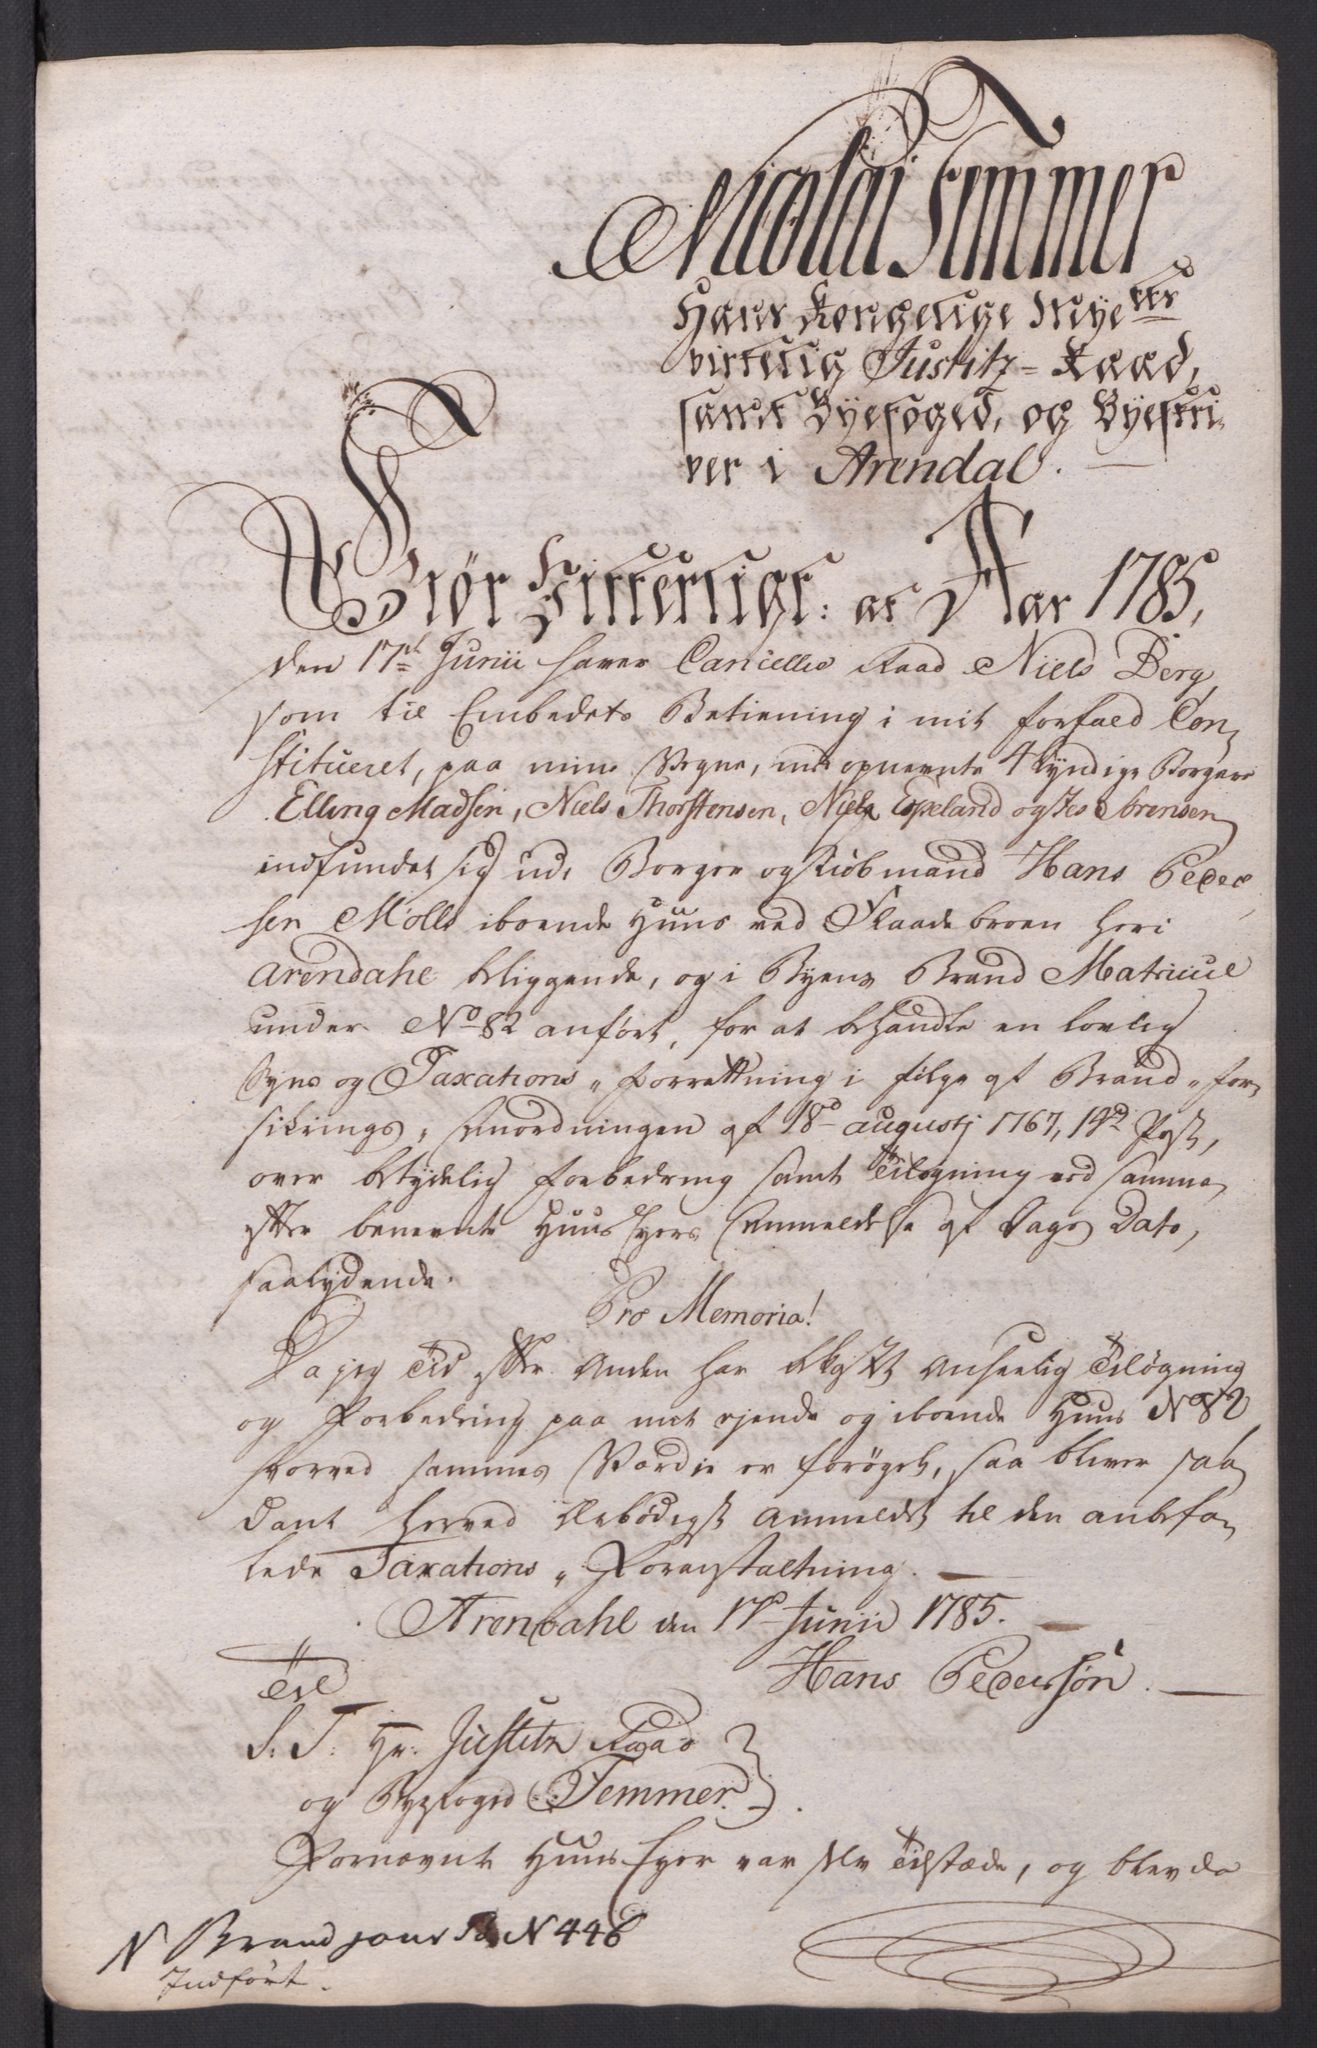 Nicolai Femmer
Hans Kongelige Maye<sup>tts</sup>
virkelig Justitz-Raad,
samt Byefoged, og Byeskri-
ver i Arendal.
Giør Vitterligt: at Aar 1785,
den 17de Junii haver Cancellie Raad Niels Berg,
som til Embedets Betiening i mit forfald Con-
stitueret, paa mine Vegne, med opnevnte 4 kyndige Borgere
Elling Madsen, Niels Thorstensen, Niels Espeland og Jes Sørensen
indfundet sig udi Borger og Kiøbmand Hans Peder-
sen Molls iboende Huus ved Flaadebroen her i
Arendahl beliggende, og i Byens Brand Matricul
under No 82 anført, for at behandle en lovlig
Syns og Taxations-Forretning i følge af Brand-for-
sikrings-Anordningen af 18d augustj 1767, 14d Post,
over betydelig Forbedring samt Tilbygning ved samme,
efter benevnte Huus Eyers Anmeldelse af Dags Dato,
saalydende.
Pro Memoria!
Da jeg Tid efter Anden har bekostet Anseelig Tilbøgning
og Forbedring paa mit ejende og iboende Huus No 82
hvorved sammes Værdie er forøget, saa bliver saa-
dant herved Ærbødigst anmeldt til den anbefa-
lede Taxations-Foranstaltning.
Arendahl den 17d Junii 1785.
Hans Pedersøn.
Til
S. T. Hr. Justitz Raad
og Byefoged Femmer.
Fornevnte Huus Eyer var selv Tilstæde, og blev da
N Brand N 446
Indført.